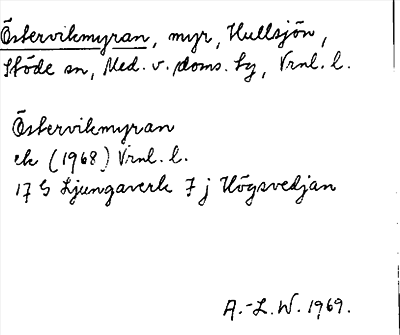 Östervikmyran, myr, Hullsjön,
Stöde sn, Med. v. doms. tg, Vrnl. l.
Östervikmyran
ek (1968) Vrnl. l.
17 G Ljungaverk 7 j Högsvedjan
A.-L.W. 1969.